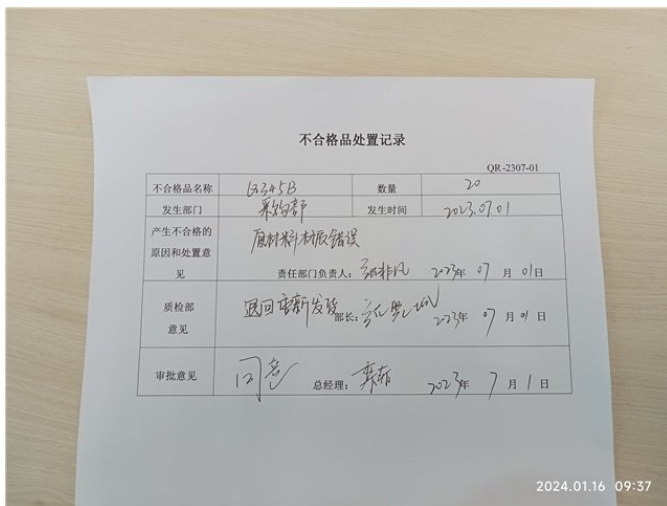 不合格品处置记录
QR-2307-01
不合格品名称 数量 20
发生部门 采购部 发生时间 2023.07.01
产生不合格的
原因和处置意
见
原材料材质错误
责任部门负责人: 2023年 07 月 01日
质检部
意见
退回重新发货 部长: 2023年 07 月 01 日
审批意见 同意 总经理: 2023年 7 月 1 日
2024.01.16 09:37